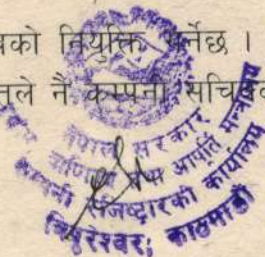 यको नियुक्ति गर्नेछ ।
तले नै कम्पनी सचिवक
नेपाल सरकार
वाणिज्य तथा आपूर्ति मन्त्रालय
कम्पनी रजिष्ट्रारको कार्यालय
त्रिपुरेश्वर, काठमाडौं